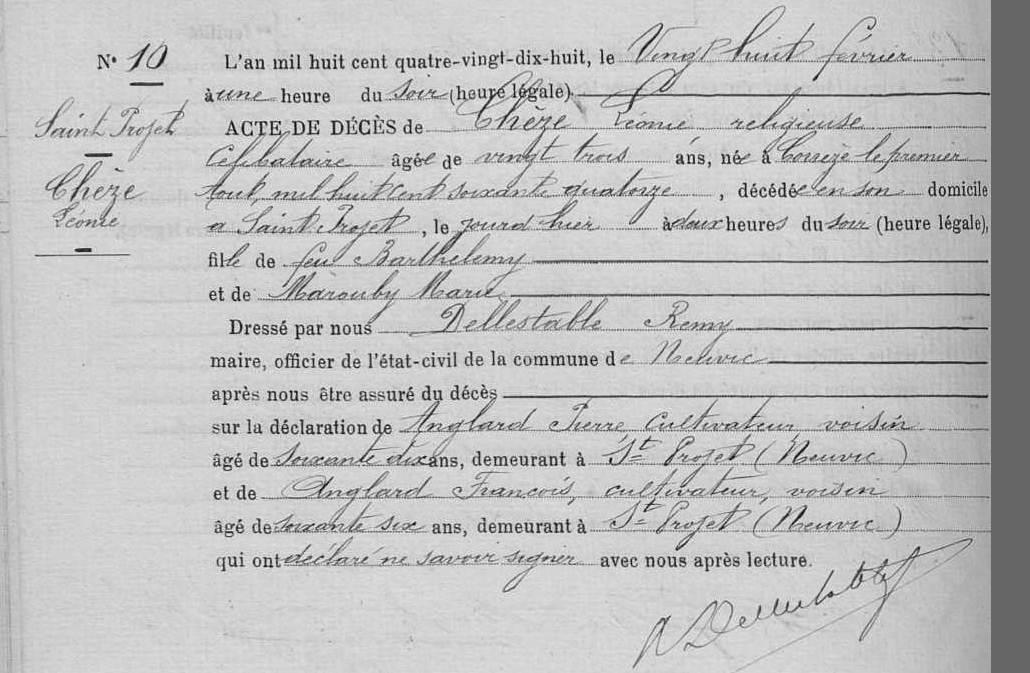 N° 10
Saint Projet
Chèze
Léonie
L'an mil huit cent quatre-vingt-dix-huit, le Vingt huit février
à une heure du soir (heure légale)
ACTE DE DÉCÈS de Chèze Léonie religieuse
Célibataire âgée de vingt trois ans, née à Corrèze le premier
Aout, mil huit cent soixante quatorze, décédée en son domicile
a Saint Projet, le jourd hier à deux heures du soir (heure légale),
fille de feu Barthelemy
et de Marouby Marie
Dressé par nous Dellestable Remy
maire, officier de l'état-civil de la commune de Neuvic
après nous être assuré du décès
sur la déclaration de Anglard Pierre, cultivateur, voisin
âgé de soixante dix ans, demeurant à St Projet (Neuvic)
et de Anglard François, cultivateur, voisin
âgé de soixante six ans, demeurant à St Projet (Neuvic)
qui ont déclaré ne savoir signer avec nous après lecture.
R Dellestable